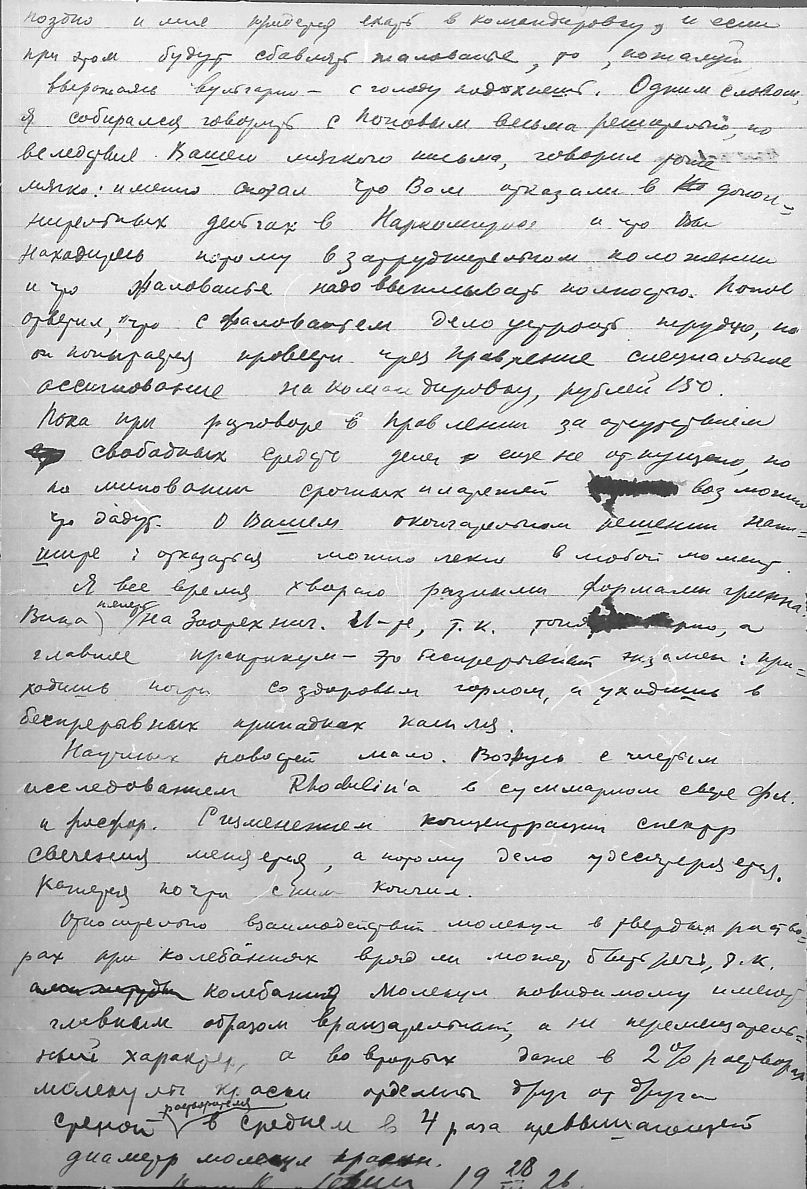 поздно и мне придется ехать в командировку, и если
при этом будут сбавлять жалованье, то, пожалуй
выражаясь вульгарно – с голоду подохнешь. Одним словом,
я собирался говорить с Поповым весьма решительно, но
вследствие Вашего мягкого письма, говорил тоже
мягко: именно сказал что Вам отказали в допол-
нительных деньгах в Наркомпросе и что Вы
находитесь потому в затруднительном положении
и что жалованье надо выписывать полностью. Попов
ответил, что с жалованьем дело устроить трудно, но
он попытается провести чрез Правление специальное
ассигнование на командировку, рублей 150.
Пока при разговоре в Правлении за отсутствием
свободных средств денег еще не отпущено, но
по миновании срочных платежей возможно
что дадут. О Вашем окончательном решении напи-
шите: отказаться можно легко в любой момент.
Я все время хвораю разными формами гриппа.
Вина на Зоотехнич. И-те, т.к. а
главное практикум – это беспрерывный экзамен: при-
ходишь почти со здоровым горлом, а уходишь в
беспрерывных припадках кашля.
Научных новостей мало. Вожусь с чистым
исследованием Rhodulin'а в суммарном свете фл.
и фосфор. С изменением концентрации спектр
свечения меняется, а потому дело удесятеряется.
Кажется почти с ним кончил.
Относительно взаимодействий молекул в твердых раство-
рах при колебаниях вряд ли может быть речь, т.к.
колебания молекул повидимому имеют
главным образом вращательный, а не перемещатель-
ный характер, а во вторых даже в 2% растворах
молекулы краски отделены друг от друга
средой растворителя в среднем в 4 раза превышающей
диаметр молекул краски.
19 28 26